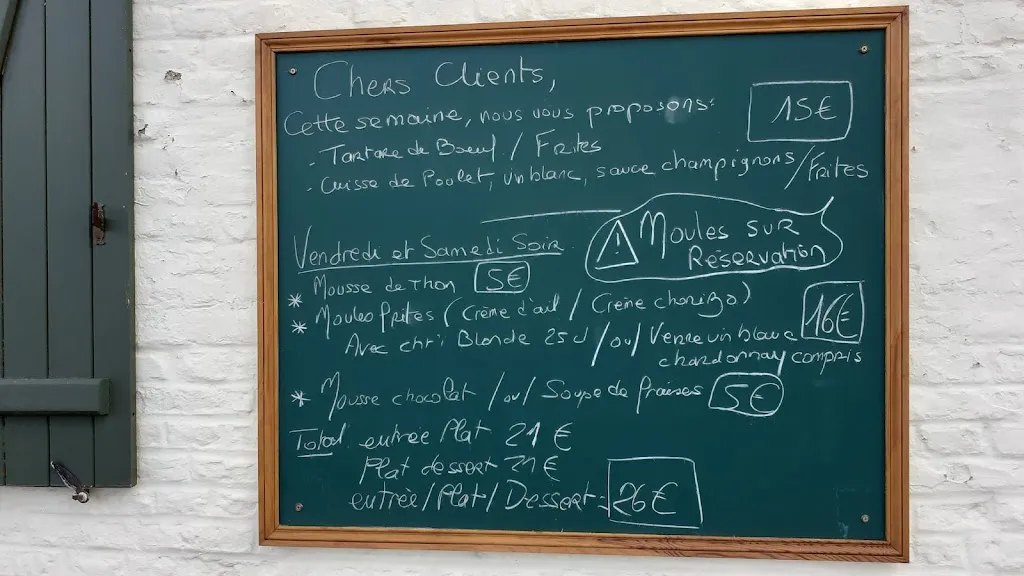 Chers Clients,
Cette semaine, nous vous proposons:
15€
- Tartare de Boeuf / Frites
- Cuisse de Poulet, vin blanc, sauce champignons / Frites
Vendredi et Samedi Soir
! Moules sur
Réservation
* Mousse de Thon 5€
* Moules frites (Crème d'ail / Crème chorizo) 16€
Avec chti Blonde 25cl / ou / Verre vin blanc
chardonnay compris
* Mousse chocolat / ou / Soupe de fraises 5€
Total entrée Plat 21 €
Plat dessert 21€
entrée / Plat / Dessert = 26€